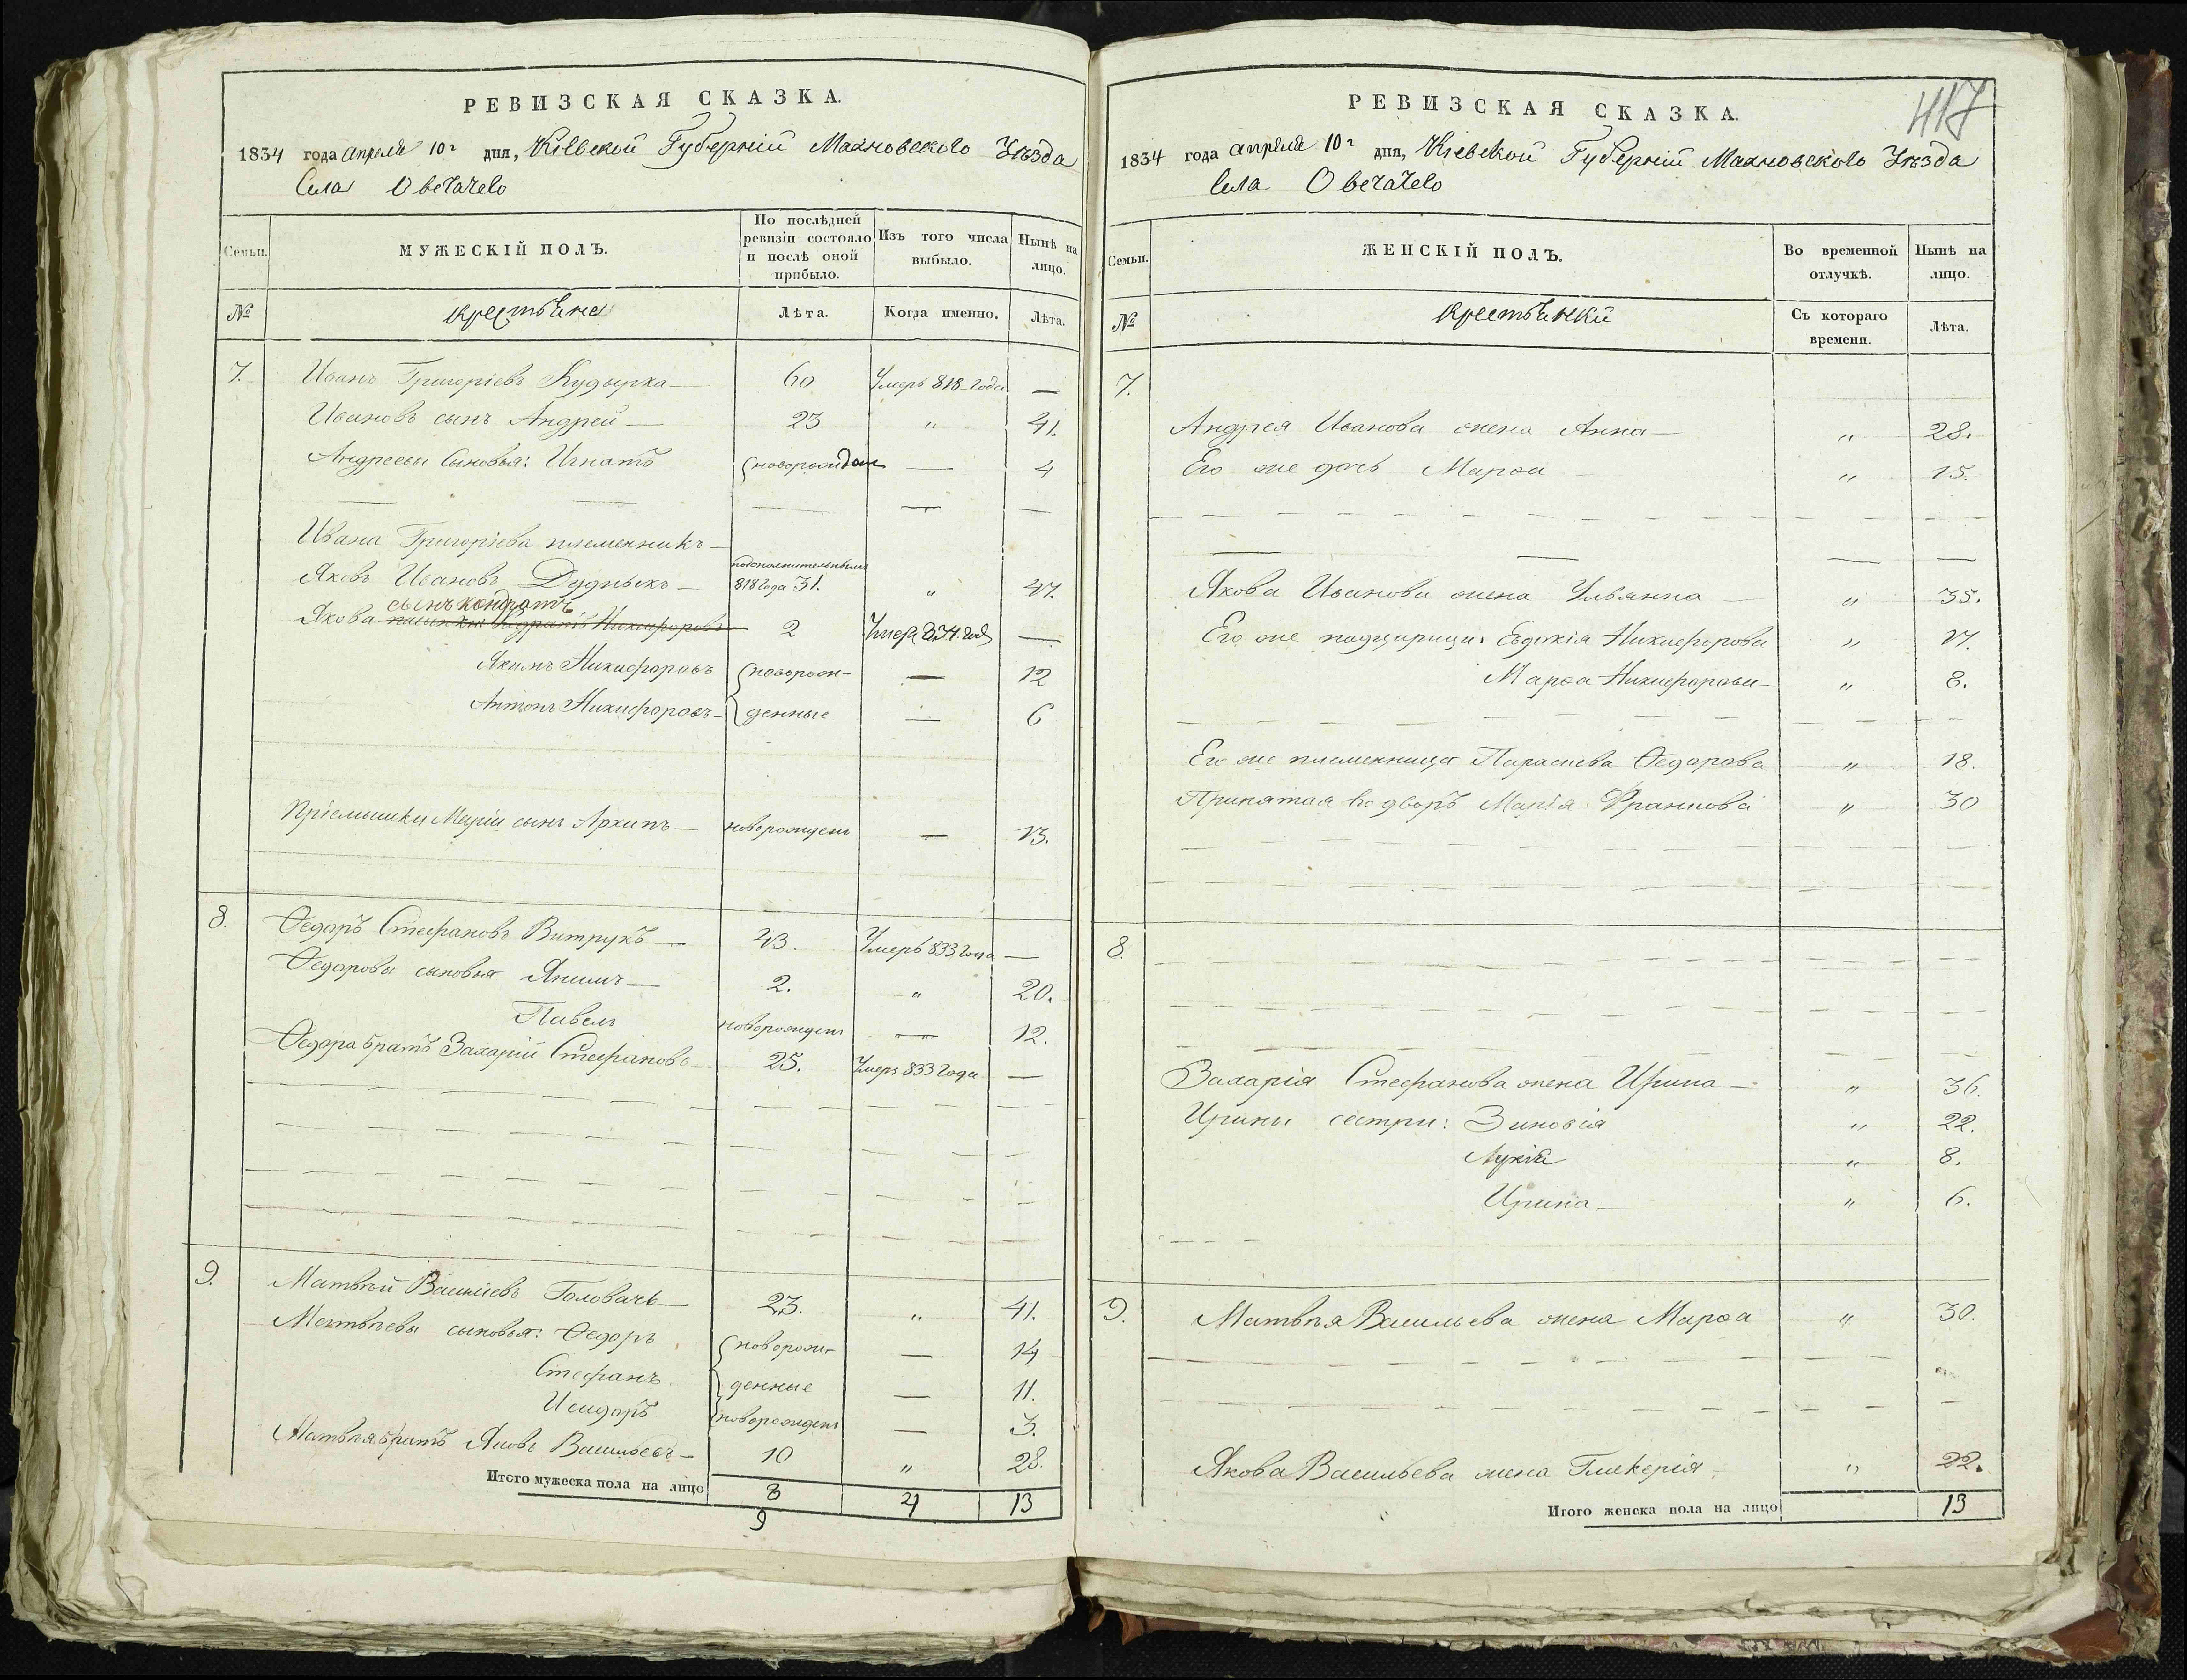 РЕВИЗСКАЯ СКАЗКА.
1834 года апреля 10г дня, Кіевской Губерніи Махновского Уѣзда
Села Овечачего
Семьи.
МУЖЕСКІЙ ПОЛЪ.
По послѣдней ревизіи состояло и послѣ оной прибыло.
Изъ того числа выбыло.
Нынѣ на лицо.
№
крестьяне
Лѣта.
Когда именно.
Лѣта.
7. Иванъ Григоріевъ Кудырка — 60 Умеръ 818 года —
Ивановъ сынъ Андрей — 23 " 41.
Андреевы сыновья: Игнатъ новорожден — 4
Ивана Григоріева племенникъ —
Яковъ Ивановъ Дудныкъ — подополнительным 818 года 31. " 47.
сынъ Кондратъ
Якова 2 Умеръ 834 года —
Якимъ Никифоровъ новорож- — 12
Антонъ Никифоровъ — денные — 6
Пріемышки Маріи сынъ Архипъ — новорожденъ — 13.
8. Ѳедоръ Стефановъ Витрукъ — 43. Умеръ 833 года —
Ѳедоровы сыновья Якимъ — 2. " 20.
Павелъ новорожденъ — 12.
Ѳедора братъ Захарій Стефановъ — 25. Умеръ 833 года —
9. Матвѣй Василіевъ Головачъ — 23. " 41.
Матвѣевы сыновья: Ѳедоръ новорож- — 14
Стефанъ денные — 11.
Исидоръ новорожденъ — 3.
Матвѣя братъ Яковъ Васильевъ — 10 " 28.
Итого мужеска пола на лицо 8 4 13
9
417
РЕВИЗСКАЯ СКАЗКА.
1834 года апреля 10г дня, Кіевской Губерніи Махновского Уѣзда
Села Овечачего
Семьи.
ЖЕНСКІЙ ПОЛЪ.
Во временной отлучкѣ.
Нынѣ на лицо.
№
крестьянки
Съ котораго времени.
Лѣта.
7.
Андрея Иванова жена Анна — " 28.
Его же дочь Марѳа " 15.
Якова Иванова жена Ульянна — " 35.
Его же падщирицы: Евдокія Никифорова " 17.
Марѳа Никифорова — " 8.
Его же племенница Параскева Ѳедорова " 18.
Принятая во дворъ Марія " 30
8.
Захарія Стефанова жена Ирина — " 36.
Ирины сестри: Зиновія " 22.
Лукія " 8.
Ирина — " 6.
9. Матвѣя Васильева жена Марѳа " 30.
Якова Васильева жена Гликерія " 22.
Итого женска пола на лицо 13